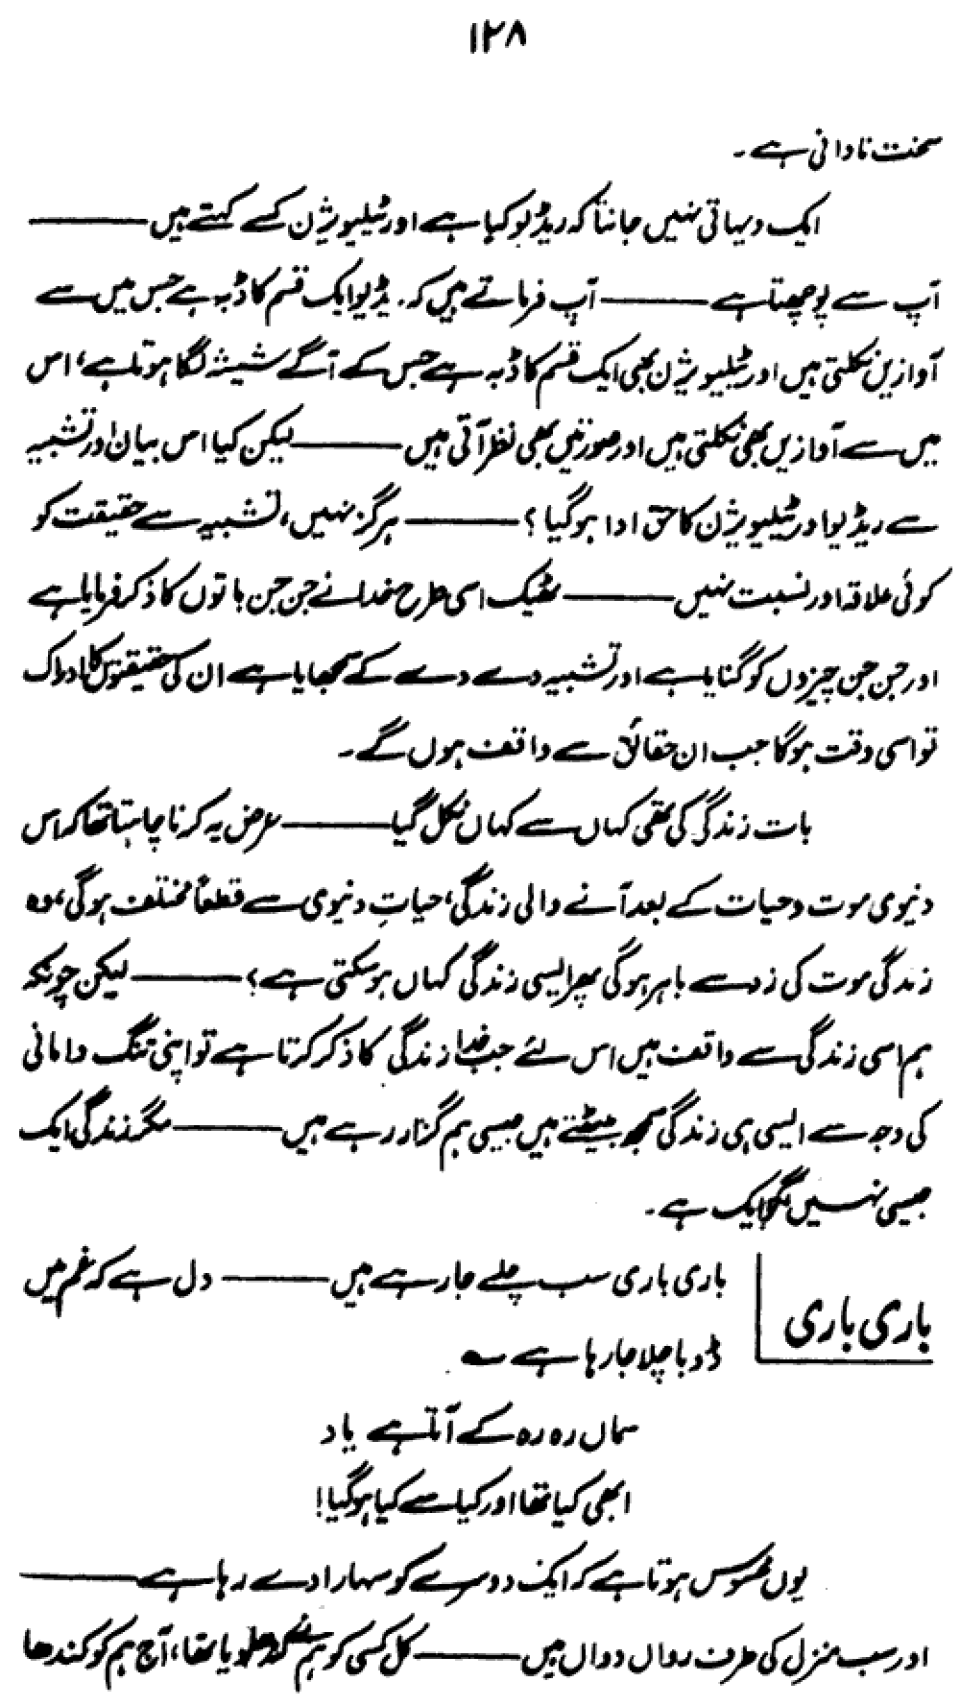 ۱۲۸
سخت نادانی ہے۔
ایک دیہاتی نہیں جانتا کہ ریڈیو کیا ہے اور ٹیلیویژن کسے کہتے ہیں ———
آپ سے پوچھتا ہے ——— آپ فرماتے ہیں کہ ریڈیو ایک قسم کا ڈبہ ہے جس میں سے
آوازیں نکلتی ہیں اور ٹیلیویژن بھی ایک قسم کا ڈبہ ہے جس کے آگے شیشہ لگا ہوتا ہے، اس
میں سے آوازیں بھی نکلتی ہیں اور صورتیں بھی نظر آتی ہیں ——— لیکن کیا اس بیان اور تشبیہ
سے ریڈیو اور ٹیلیویژن کا حق ادا ہو گیا؟ ——— ہرگز نہیں، تشبیہ سے حقیقت کو
کوئی علاقہ اور نسبت نہیں ——— ٹھیک اسی طرح خدا نے جن جن باتوں کا ذکر فرمایا ہے
اور جن جن چیزوں کو گنایا ہے اور تشبیہ دے دے کے سمجھایا ہے ان کی حقیقتوں کا ادراک
تو اسی وقت ہوگا جب ان حقائق سے واقف ہوں گے۔
بات زندگی کی تھی کہاں سے کہاں نکل گیا ——— عرض یہ کرنا چاہتا تھا کہ اس
دنیوی موت و حیات کے بعد آنے والی زندگی، حیاتِ دنیوی سے قطعاً مختلف ہوگی، وہ
زندگی موت کی زد سے باہر ہوگی پھر ایسی زندگی کہاں ہو سکتی ہے؟ ——— لیکن چونکہ
ہم اسی زندگی سے واقف ہیں اس لئے جب خدا زندگی کا ذکر کرتا ہے تو اپنی تنگ دامانی
کی وجہ سے ایسی ہی زندگی سمجھ بیٹھتے ہیں جیسی ہم گزار رہے ہیں ——— مگر زندگی ایک
جیسی نہیں گو ایک ہے۔
باری باری
باری باری سب چلے جا رہے ہیں ——— دل ہے کہ غم میں
ڈوبا چلا جا رہا ہے ؎
سماں رہ رہ کے آتا ہے یاد
ابھی کیا تھا اور کیا سے کیا ہو گیا!
یوں محسوس ہوتا ہے کہ ایک دوسرے کو سہارا دے رہا ہے ———
اور سب منزل کی طرف رواں دواں ہیں ——— کل کسی کو ہم نے کندھا دیا تھا، آج ہم کو کندھا